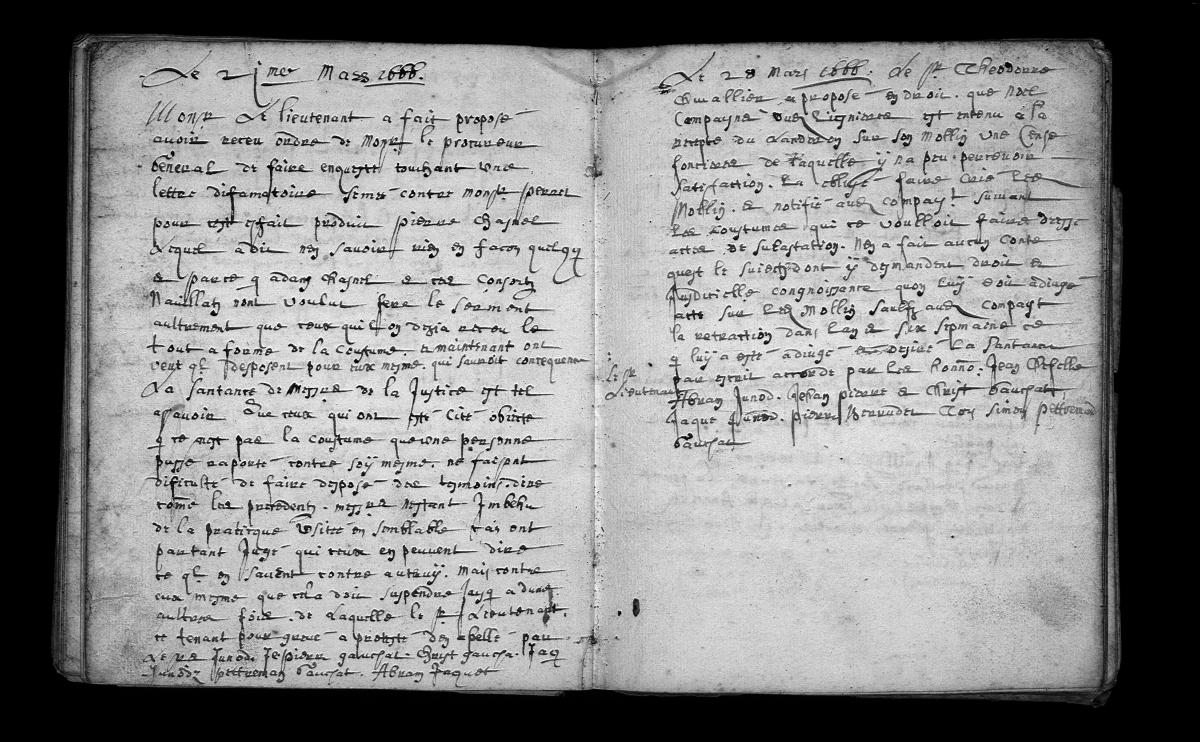 Le 21me Mars 1666.
Monsr Le lieutenant a fait proposé
avoir receu ordre de Monsr le procureur
General de faire enqueste touchant une
lettre difamatoire semé contre monsr perret
pour cest effait produit pierre Chasnel
Lequel a dit nen savoir rien en facon quelqz
& parce q adam Chasnel & ces Consortz
nont voulut fere le serment
aultrement que ceux qui lon desia receu le
tout a forme de la Coustume. & maintenant ont
veut ql desposent pour eux mesme. qui sauroit consequence
La Santance de Messrs de la Justice est tel
assavoir Que ceux qui ont esté Cité obiecte
q ce nest pas la Coustume que une personne
pusse raporté contre soÿ mesme. ne faisent
dificulté de faire desposé des tesmoins. dire
come les precedentz. messrs nestant Imbehu
de la praticque Usitée en semblable cas ont
partant Jugé qui ceux en peuvent dire
ce ql en savent contre autruÿ. Mais contre
eux mesme que cela doit suspendre Jusq a dune
aultres fois. de Laquelle le sr Lieutenant.
ce tenant pour grevé a protesté den apellé par
Junod. Jepierre gauchat. Christ gaucha. Jaq
Junod petremand Gauchat. Abram Jaquet
Le 28 Mars 1666. Le sr Theodorre
Chevallier a proposé en droit. que Noel
Compagne est entenu à la
recepte du Landeron sur son Mollin une Cense
fonciere de Laquelle ÿ na peu percevoir
satisfaction. La obligé faire crié Led
Mollin. & notifié aud compagt suivant
Les coustumes qui ce voulloit faire dresse
actes de subastation. Nen a fait aucun Conte
quest le suiect dont ÿ demandent droit &
Juditielle congnoissance quon luÿ doit adiugé
acte sur Led Mollin saulfz aud Compagt
la retraction dans Lan & six sepmaine ce
q luÿ a esté adiugé desiré La Santance
par escrit accordé par Les honno. Jean
Le sr
Lieutenant
Abram Junod. Jehan pierre & Christ Gauchat
Jaque Junod. pierre Simon petremand
Gauchat